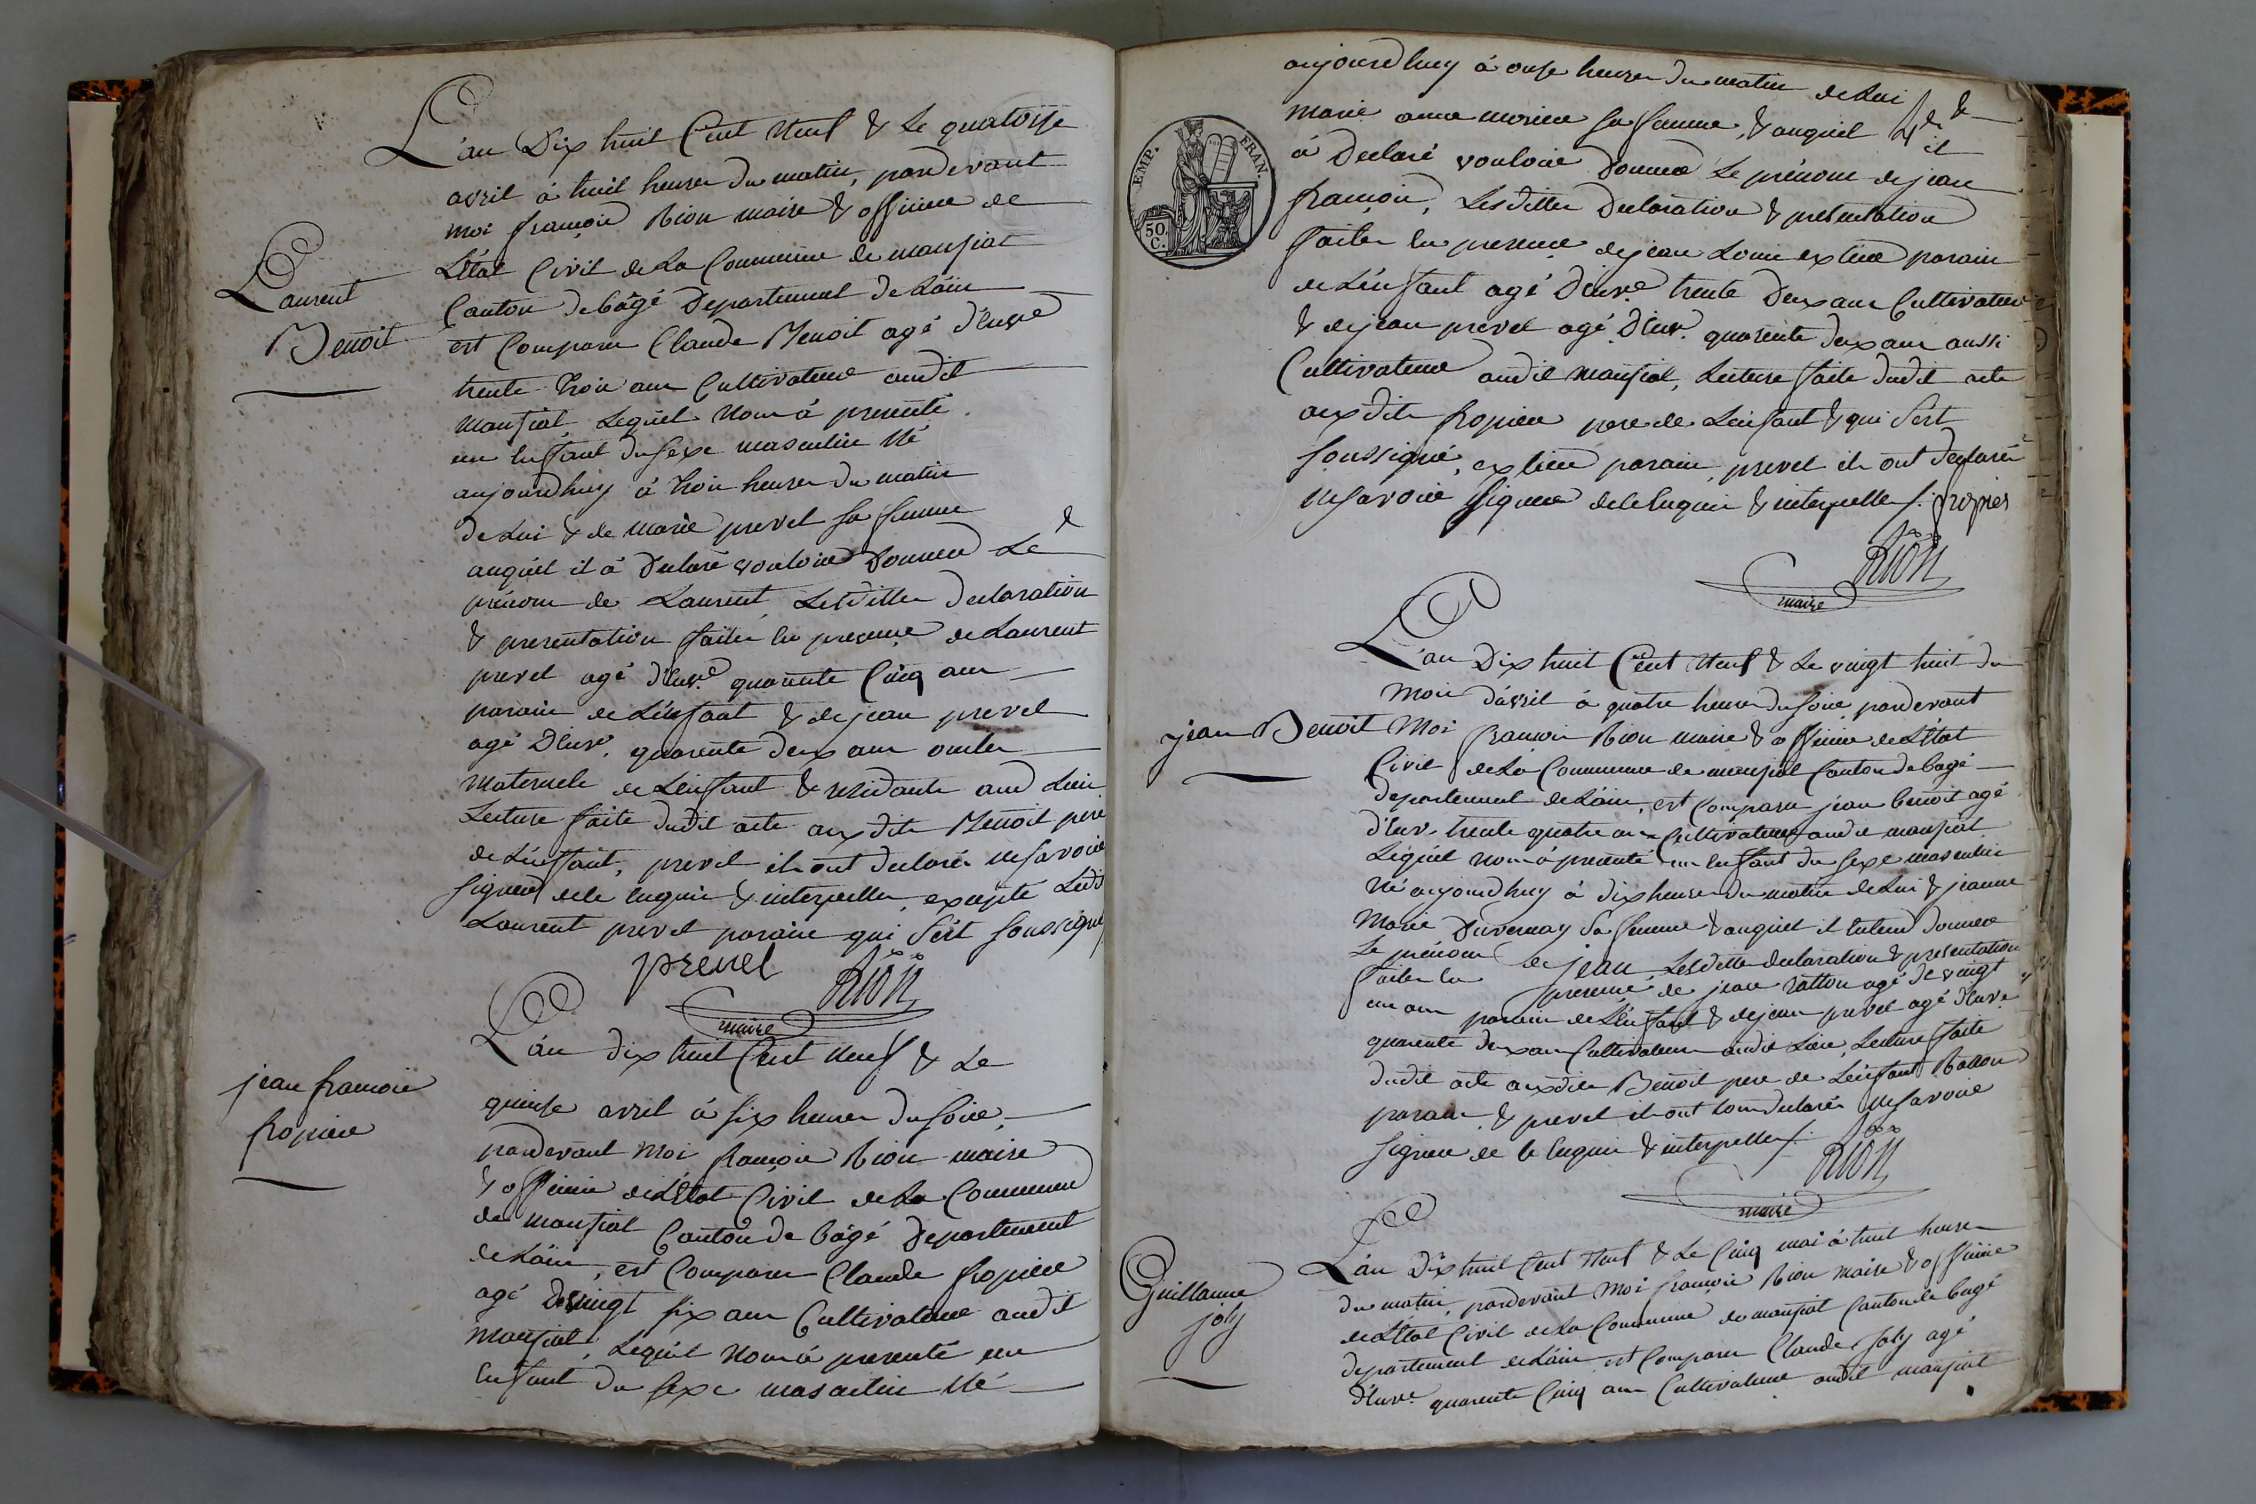 Laurent
Benoit
L'an Dix huit Cent Neuf & Le quatorze
avril à huit heures du matin, pardevant
moi françois Rion maire & officier de
L'état Civil de La Commune de manziat
Canton de bâgé Departement de L'ain
est Comparu Claude Benoit agé d'Envn
trente trois ans Cultivateur audit
manziat Lequel nous à presenté
un Enfant du sexe masculin Né
aujourdhuy à trois heures du matin
de Lui & de marie prevel sa femme &
auquel il à Declaré vouloir Donner Le
prénom de Laurent, Lesdittes declaration
& presentation faites En presence de Laurent
prevel agé d'Envn quarente Cinq ans
parain de L'enfant & de jean prevel
agé D'Envn quarente deux ans oncles
maternels de L'enfant & residants aud Lieu
Lecture faite dudit acte auxdits Benoit pere
de L'enfant, prevel ils ont declarés ne savoir
signer de ce Enquis & interpellés, excepté Ledt
Laurent prevel parain qui s'est soussigné
prevel Rion
maire
jean françois
fropier
L'an dix huit Cent neuf & Le
quinze avril à six heures du soir,
pardevant moi françois Rion maire
& officier de L'état Civil de La Commune
de manziat Canton de bâgé Departement
de L'ain, est Comparu Claude fropier
agé de vingt six ans Cultivateur audit
manziat, Lequel nous à presenté un
Enfant du sexe masculin Né
EMP. FRAN.
50.
C.
aujourdhuy à onze heures du matin de Lui & de
marie anne morier sa femme, & auquel il
à Declaré vouloir Donner Le prénom de jean
françois, Lesdittes Declaration & presentation
faites En presence de jean Louis parain
de L'énfant agé D'Envn trente Deux ans Cultivateur
& de jean prevel agé D'Env. quarente deux ans aussi
Cultivateur audit manziat, Lecture faite dudit acte
auxdits fropier pere de L'enfant & qui s'est
soussigné, parain, prevel ils ont declarés
ne savoir signer de ce Enquis & interpellés /. fropier
Rion
maire
jean Benoit
L'an Dix huit Cent Neuf & Le vingt huit du
mois d'avril à quatre heures du soir pardevant
Moi françois Rion maire & officier de L'état
Civil de La Commune de manziat Canton de bagé
departement de L'ain, est Comparu jean benoit agé
d'Env. trente quatre ans Cultivateur audit manziat
Lequel nous à presenté un Enfant du sexe masculin
Né aujourdhuy à dix heures du matin de Lui & jeanne
Marie Duvernay sa femme & auquel il Entend donner
Le prénom de jean Lesdittes declaration & presentation
faites En presence de jean ratton agé de vingt
un ans parain de L'enfant & de jean prevel agé d'Envn
quarente deux ans Cultivateurs audit Lieu, Lecture faite
dudit acte auxdits Benoit pere de L'enfant Ratton
parain & prevel ils ont tous declarés ne savoir
signer de ce Enquis & interpellés /.
Rion
maire
Guillaume
joly
L'an Dix huit Cent Neuf & Le Cinq mai à huit heures
du matin, pardevant moi françois Rion maire & officier
de L'état Civil de La Commune de manziat Canton de bagé
departement de L'ain est Comparu Claude joly agé
d'Envn quarente Cinq ans Cultivateur audit manziat